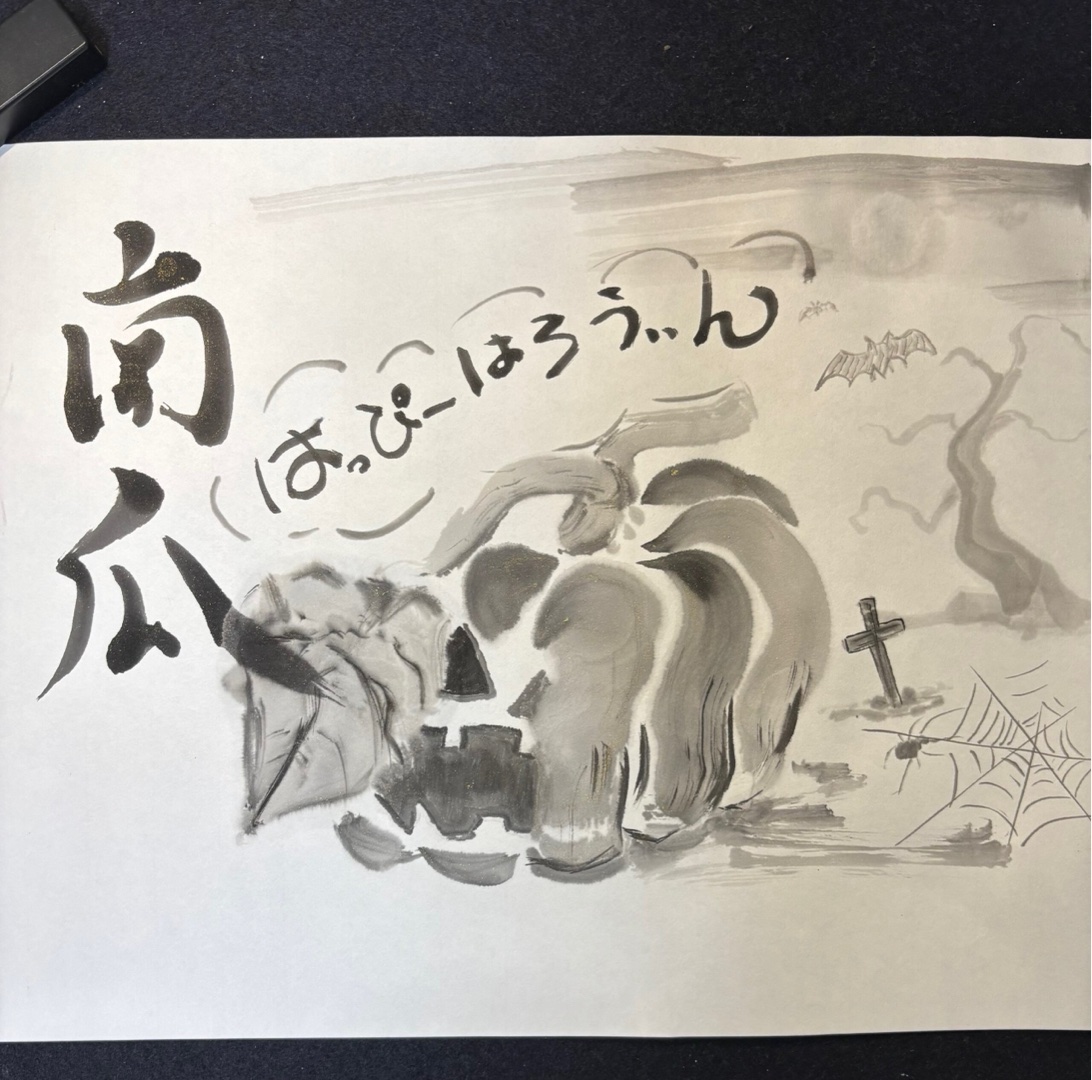 南瓜
はっぴーはろうぃん